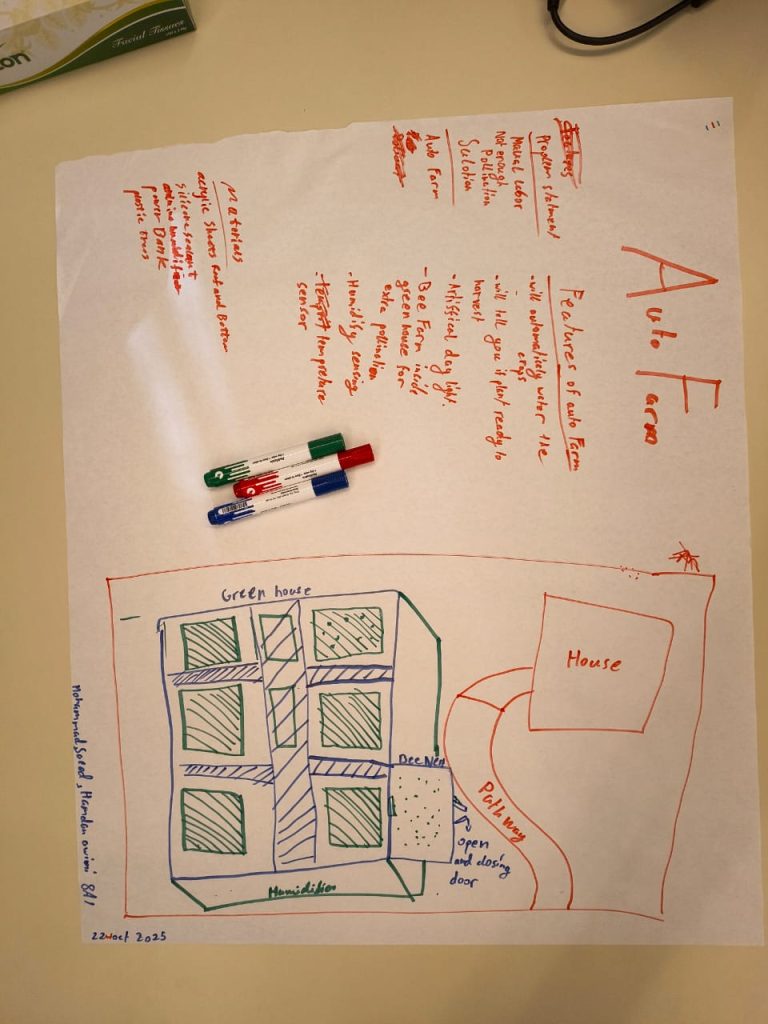 Auto Farm
Problem statment
Manual labor
Not enough
Pollination
Solution
Auto Farm
Features of auto Farm
- will automaticly water the
crops
- will tell you if plant ready to
harvest
- Artiffical day light.
- Bee Farm inside
green house for
extra pollination
- Humidify sensing
- tempreture
sensor
Materials
acrylic sheets Roof and Bottom
silicone sealant
power Bank
plastic trees
Green house
House
Bee Nest
Pathway
open
and closing
door
Humidifier
Mohammad Soead, Hamdan owimi 8A1
22 oct 2025
Facial Tissues